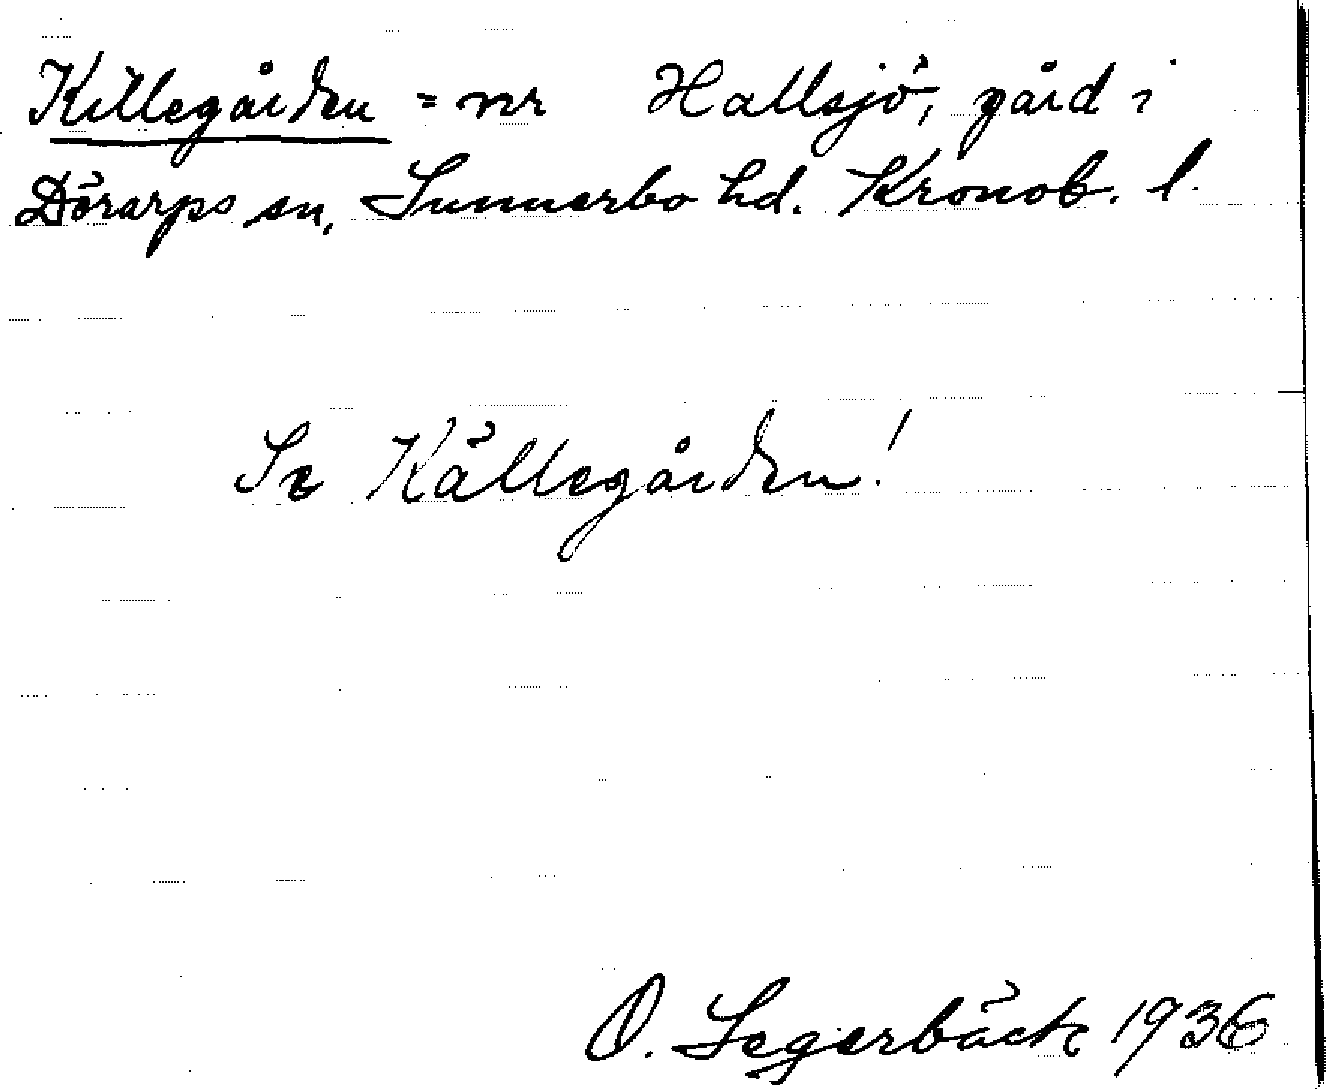 Killegården = nr Hallsjö, gård i
Dörarps sn, Sunnerbo hd. Kronob. l.
Se Källegården!
O. Segerbäck 1936